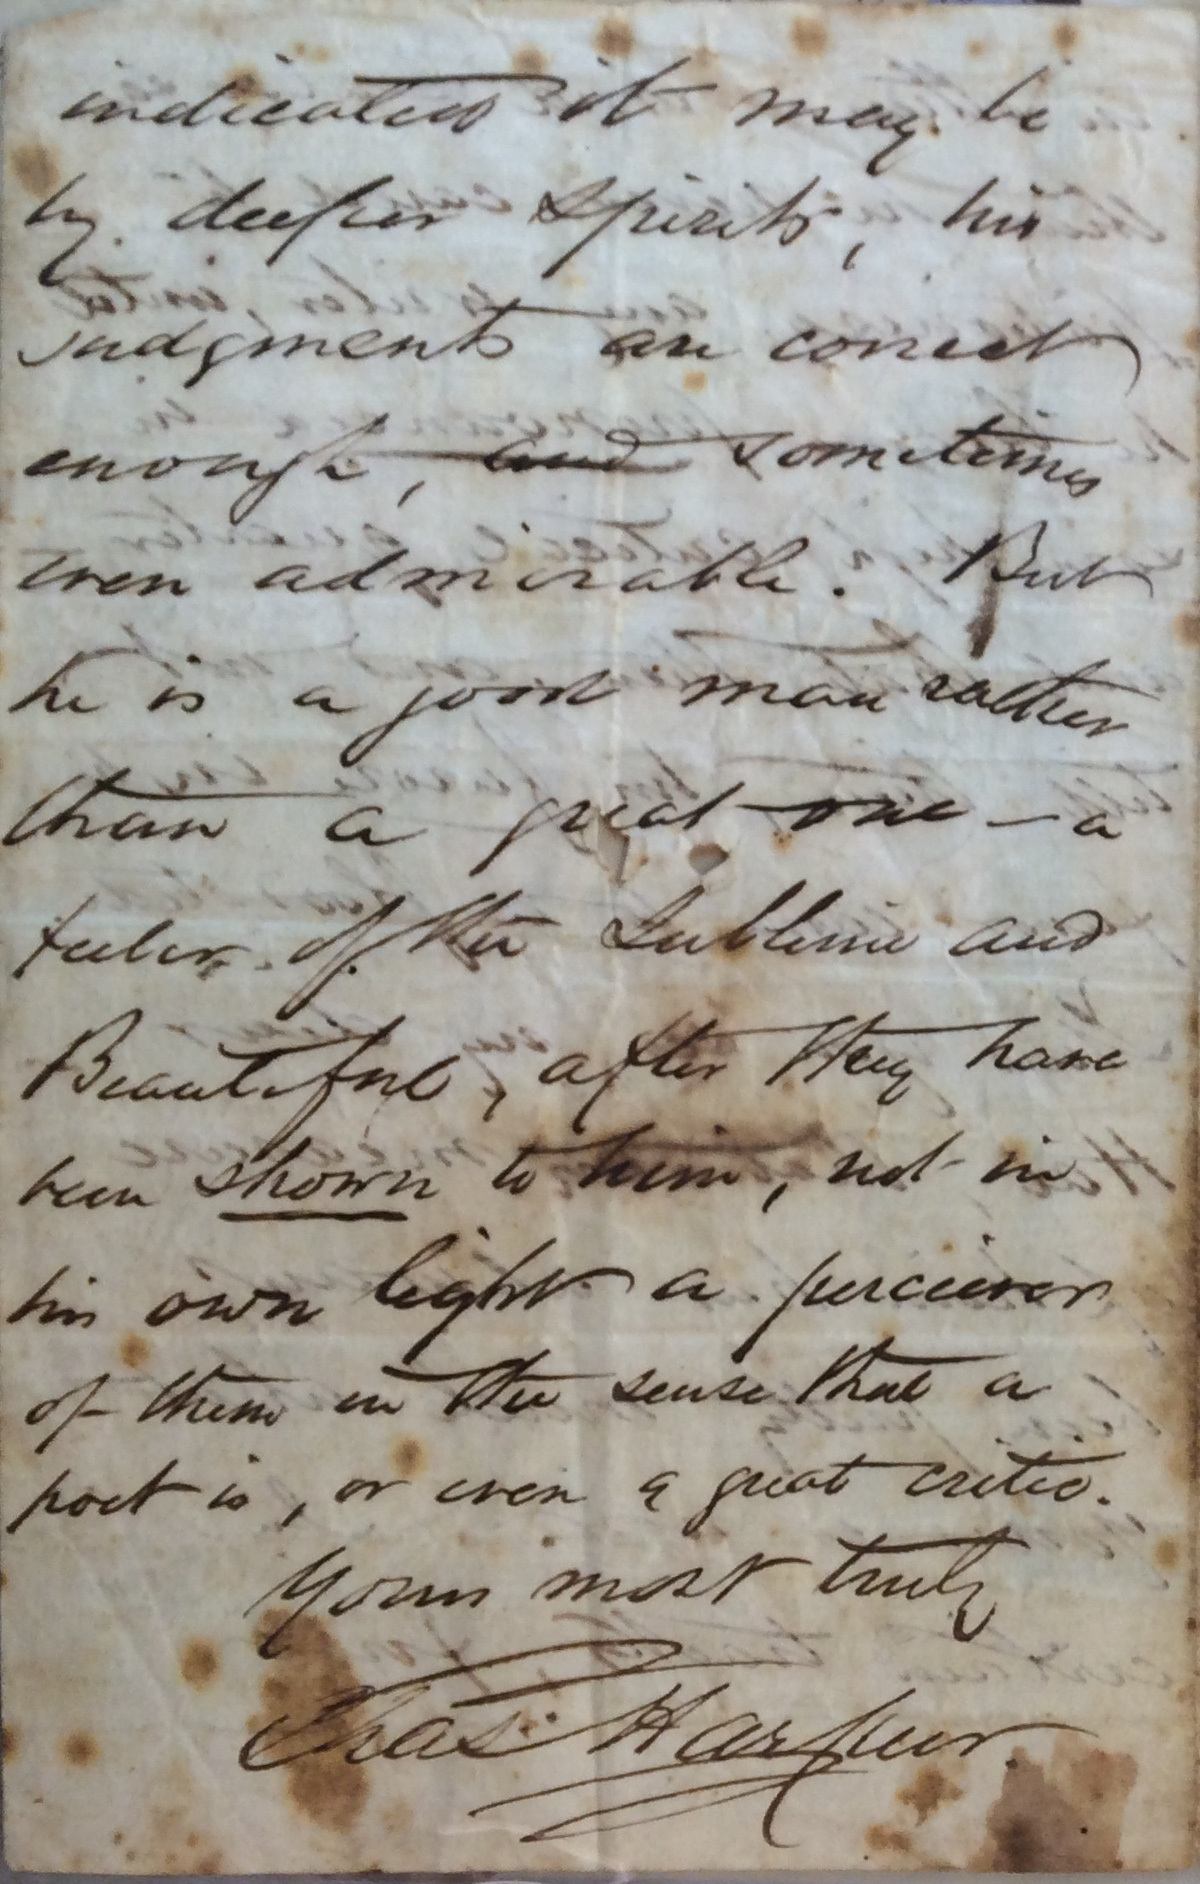 indicated it may be
by deeper spirits, his
judgments are correct
enough, and sometimes
even admirable. But
he is a good man rather
than a great one — a
feeler of the Sublime and
Beautiful, after they have
been shown to him, not in
his own light a perceiver
of them in the sense that a
poet is, or even a great critic.
Yours most truly
Chas. Harpur.